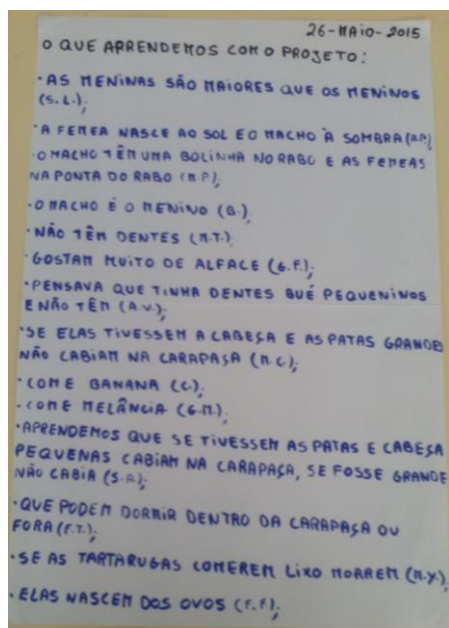 26-MAIO-2015
O QUE APRENDEMOS COM O PROJETO:
·AS MENINAS SÃO MAIORES QUE OS MENINOS
(S.L.);
·A FEMEA NASCE AO SOL E O MACHO À SOMBRA (R.P.)
·O MACHO TÊM UMA BOLINHA NO RABO E AS FEMEAS
NA PONTA DO RABO (M.P.);
·O MACHO É O MENINO (B.);
·NÃO TÊM DENTES (M.T.);
·GOSTAM MUITO DE ALFACE (G.F.);
·PENSAVA QUE TINHA DENTES BUÉ PEQUENINOS
E NÃO TÊM (A.V.);
·SE ELAS TIVESSEM A CABEÇA E AS PATAS GRANDES
NÃO CABIAM NA CARAPAÇA (M.C.);
·COME BANANA (C.);
·COME MELÂNCIA (G.M.);
·APRENDEMOS QUE SE TIVESSEM AS PATAS E CABEÇA
PEQUENAS CABIAM NA CARAPAÇA, SE FOSSE GRANDE
NÃO CABIA (S.A.);
·QUE PODEM DORMIR DENTRO DA CARAPAÇA OU
FORA (F.T.);
·SE AS TARTARUGAS COMEREM LIXO MORREM (M.Y.);
·ELAS NASCEM DOS OVOS (F.F.);